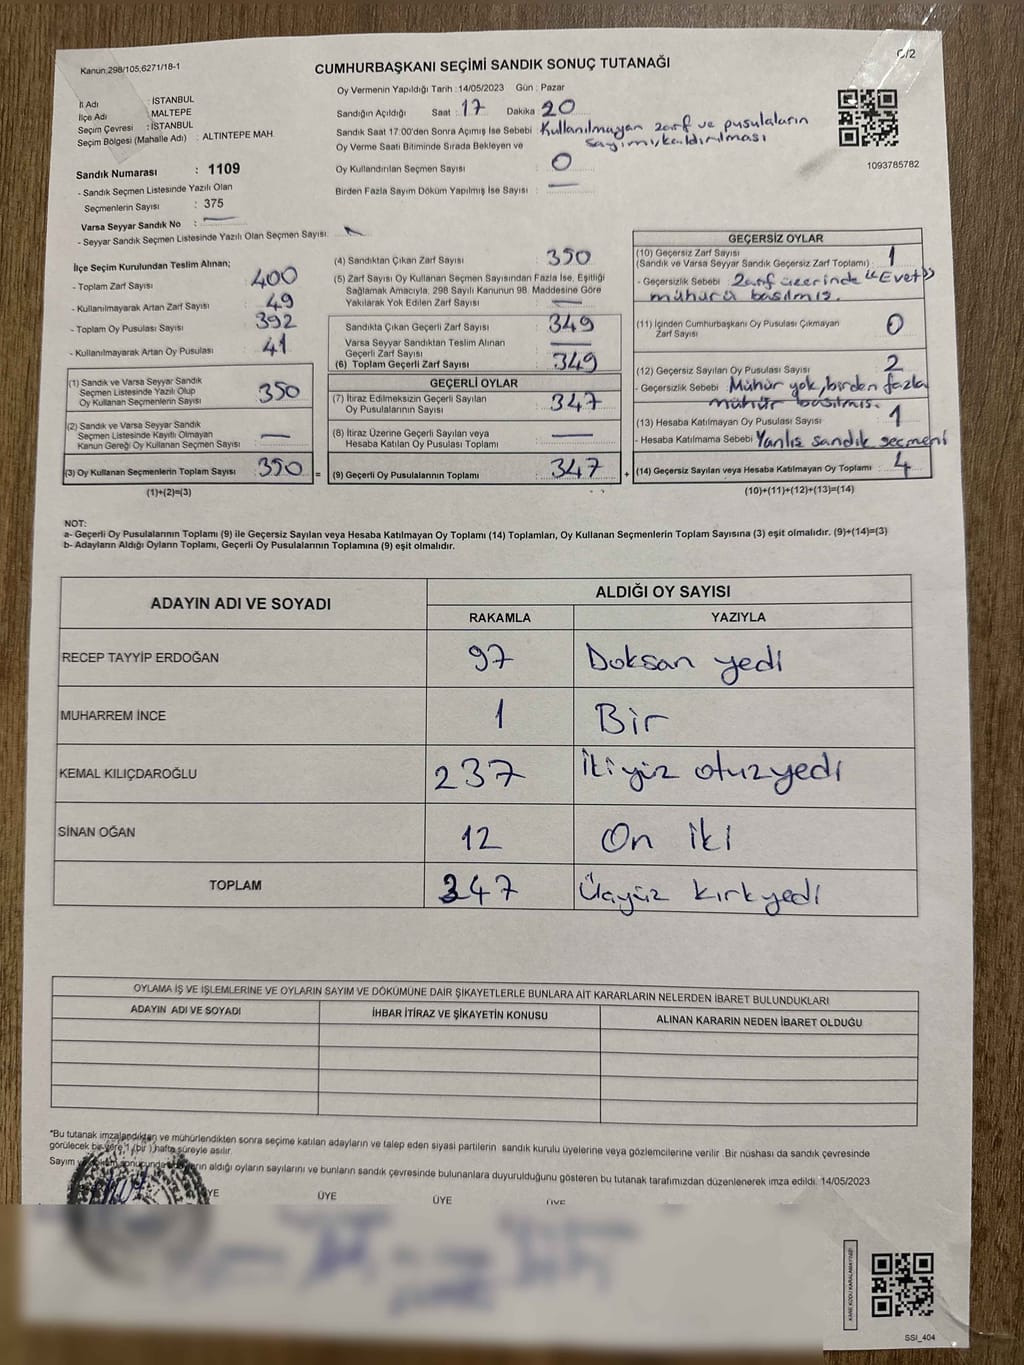 Kanun:298/105,6271/18-1
C/2
CUMHURBAŞKANI SEÇİMİ SANDIK SONUÇ TUTANAĞI
Oy Vermenin Yapıldığı Tarih : 14/05/2023 Gün : Pazar
İl Adı : İSTANBUL
İlçe Adı : MALTEPE
Seçim Çevresi : İSTANBUL
Seçim Bölgesi (Mahalle Adı) : ALTINTEPE MAH.
Sandığın Açıldığı Saat : 17 Dakika 20
Sandık Saat 17.00'den Sonra Açımış İse Sebebi Kullanılmayan zarf ve pusulaların
sayımı, kaldırılması
Oy Verme Saati Bitiminde Sırada Bekleyen ve
Oy Kullandırılan Seçmen Sayısı : 0
Birden Fazla Sayım Döküm Yapılmış İse Sayısı : —
1093785782
Sandık Numarası : 1109
- Sandık Seçmen Listesinde Yazılı Olan
Seçmenlerin Sayısı : 375
Varsa Seyyar Sandık No : —
- Seyyar Sandık Seçmen Listesinde Yazılı Olan Seçmen Sayısı:
İlçe Seçim Kurulundan Teslim Alınan;
- Toplam Zarf Sayısı : 400
- Kullanılmayarak Artan Zarf Sayısı : 49
- Toplam Oy Pusulası Sayısı : 392
- Kullanılmayarak Artan Oy Pusulası : 41
(1) Sandık ve Varsa Seyyar Sandık
Seçmen Listesinde Yazılı Olup
Oy Kullanan Seçmenlerin Sayısı : 350
(2) Sandık ve Varsa Seyyar Sandık
Seçmen Listesinde Kayıtlı Olmayan
Kanun Gereği Oy Kullanan Seçmen Sayısı : —
(3) Oy Kullanan Seçmenlerin Toplam Sayısı : 350 =
(1)+(2)=(3)
(4) Sandıktan Çıkan Zarf Sayısı : 350
(5) Zarf Sayısı Oy Kullanan Seçmen Sayısından Fazla İse, Eşitliği
Sağlamak Amacıyla, 298 Sayılı Kanunun 98. Maddesine Göre
Yakılarak Yok Edilen Zarf Sayısı : —
Sandıkta Çıkan Geçerli Zarf Sayısı : 349
Varsa Seyyar Sandıktan Teslim Alınan
Geçerli Zarf Sayısı : —
(6) Toplam Geçerli Zarf Sayısı : 349
GEÇERLİ OYLAR
(7) İtiraz Edilmeksizin Geçerli Sayılan
Oy Pusulalarının Sayısı : 347
(8) İtiraz Üzerine Geçerli Sayılan veya
Hesaba Katılan Oy Pusulası Toplamı : —
(9) Geçerli Oy Pusulalarının Toplamı : 347 +
GEÇERSİZ OYLAR
(10) Geçersiz Zarf Sayısı
(Sandık ve Varsa Seyyar Sandık Geçersiz Zarf Toplamı) : 1
- Geçersizlik Sebebi : Zarf üzerinde "Evet"
mühürü basılmış.
(11) İçinden Cumhurbaşkanı Oy Pusulası Çıkmayan
Zarf Sayısı : 0
(12) Geçersiz Sayılan Oy Pusulası Sayısı : 2
- Geçersizlik Sebebi : Mühür yok, birden fazla
mühür basılmış.
(13) Hesaba Katılmayan Oy Pusulası Sayısı : 1
- Hesaba Katılmama Sebebi Yanlış sandık seçmeni
(14) Geçersiz Sayılan veya Hesaba Katılmayan Oy Toplamı : 4
(10)+(11)+(12)+(13)=(14)
NOT:
a- Geçerli Oy Pusulalarının Toplamı (9) ile Geçersiz Sayılan veya Hesaba Katılmayan Oy Toplamı (14) Toplamları, Oy Kullanan Seçmenlerin Toplam Sayısına (3) eşit olmalıdır. (9)+(14)=(3)
b- Adayların Aldığı Oyların Toplamı, Geçerli Oy Pusulalarının Toplamına (9) eşit olmalıdır.
ADAYIN ADI VE SOYADI ALDIĞI OY SAYISI
RAKAMLA YAZIYLA
RECEP TAYYİP ERDOĞAN 97 Doksan yedi
MUHARREM İNCE 1 Bir
KEMAL KILIÇDAROĞLU 237 İkiyüz otuzyedi
SİNAN OĞAN 12 On iki
TOPLAM 347 Üçyüz kırkyedi
OYLAMA İŞ VE İŞLEMLERİNE VE OYLARIN SAYIM VE DÖKÜMÜNE DAİR ŞİKAYETLERLE BUNLARA AİT KARARLARIN NELERDEN İBARET BULUNDUKLARI
ADAYIN ADI VE SOYADI İHBAR İTİRAZ VE ŞİKAYETİN KONUSU ALINAN KARARIN NEDEN İBARET OLDUĞU
*Bu tutanak imzalandıktan ve mühürlendikten sonra seçime katılan adayların ve talep eden siyasi partilerin sandık kurulu üyelerine veya gözlemcilerine verilir .Bir nüshası da sandık çevresinde
görülecek bir yere 1 (bir ) hafta süreyle asılır.
Sayım aldığı oyların sayılarını ve bunların sandık çevresinde bulunanlara duyurulduğunu gösteren bu tutanak tarafımızdan düzenlenerek imza edildi. 14/05/2023
ÜYE ÜYE ÜYE
KARE KODU KARALAMAYINIZ!
SSİ_404